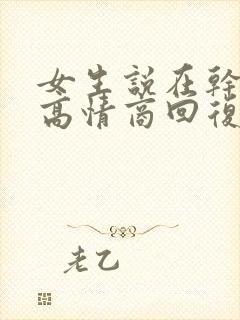 女生說在幹
高情商回復
老乙